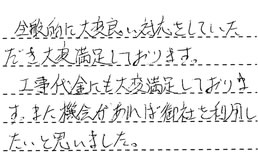 全般的に大変良い対応をしていた
だき大変満足しております。
工事代金にも大変満足しておりま
す。また機会があれば御社を利用し
たいと思いました。